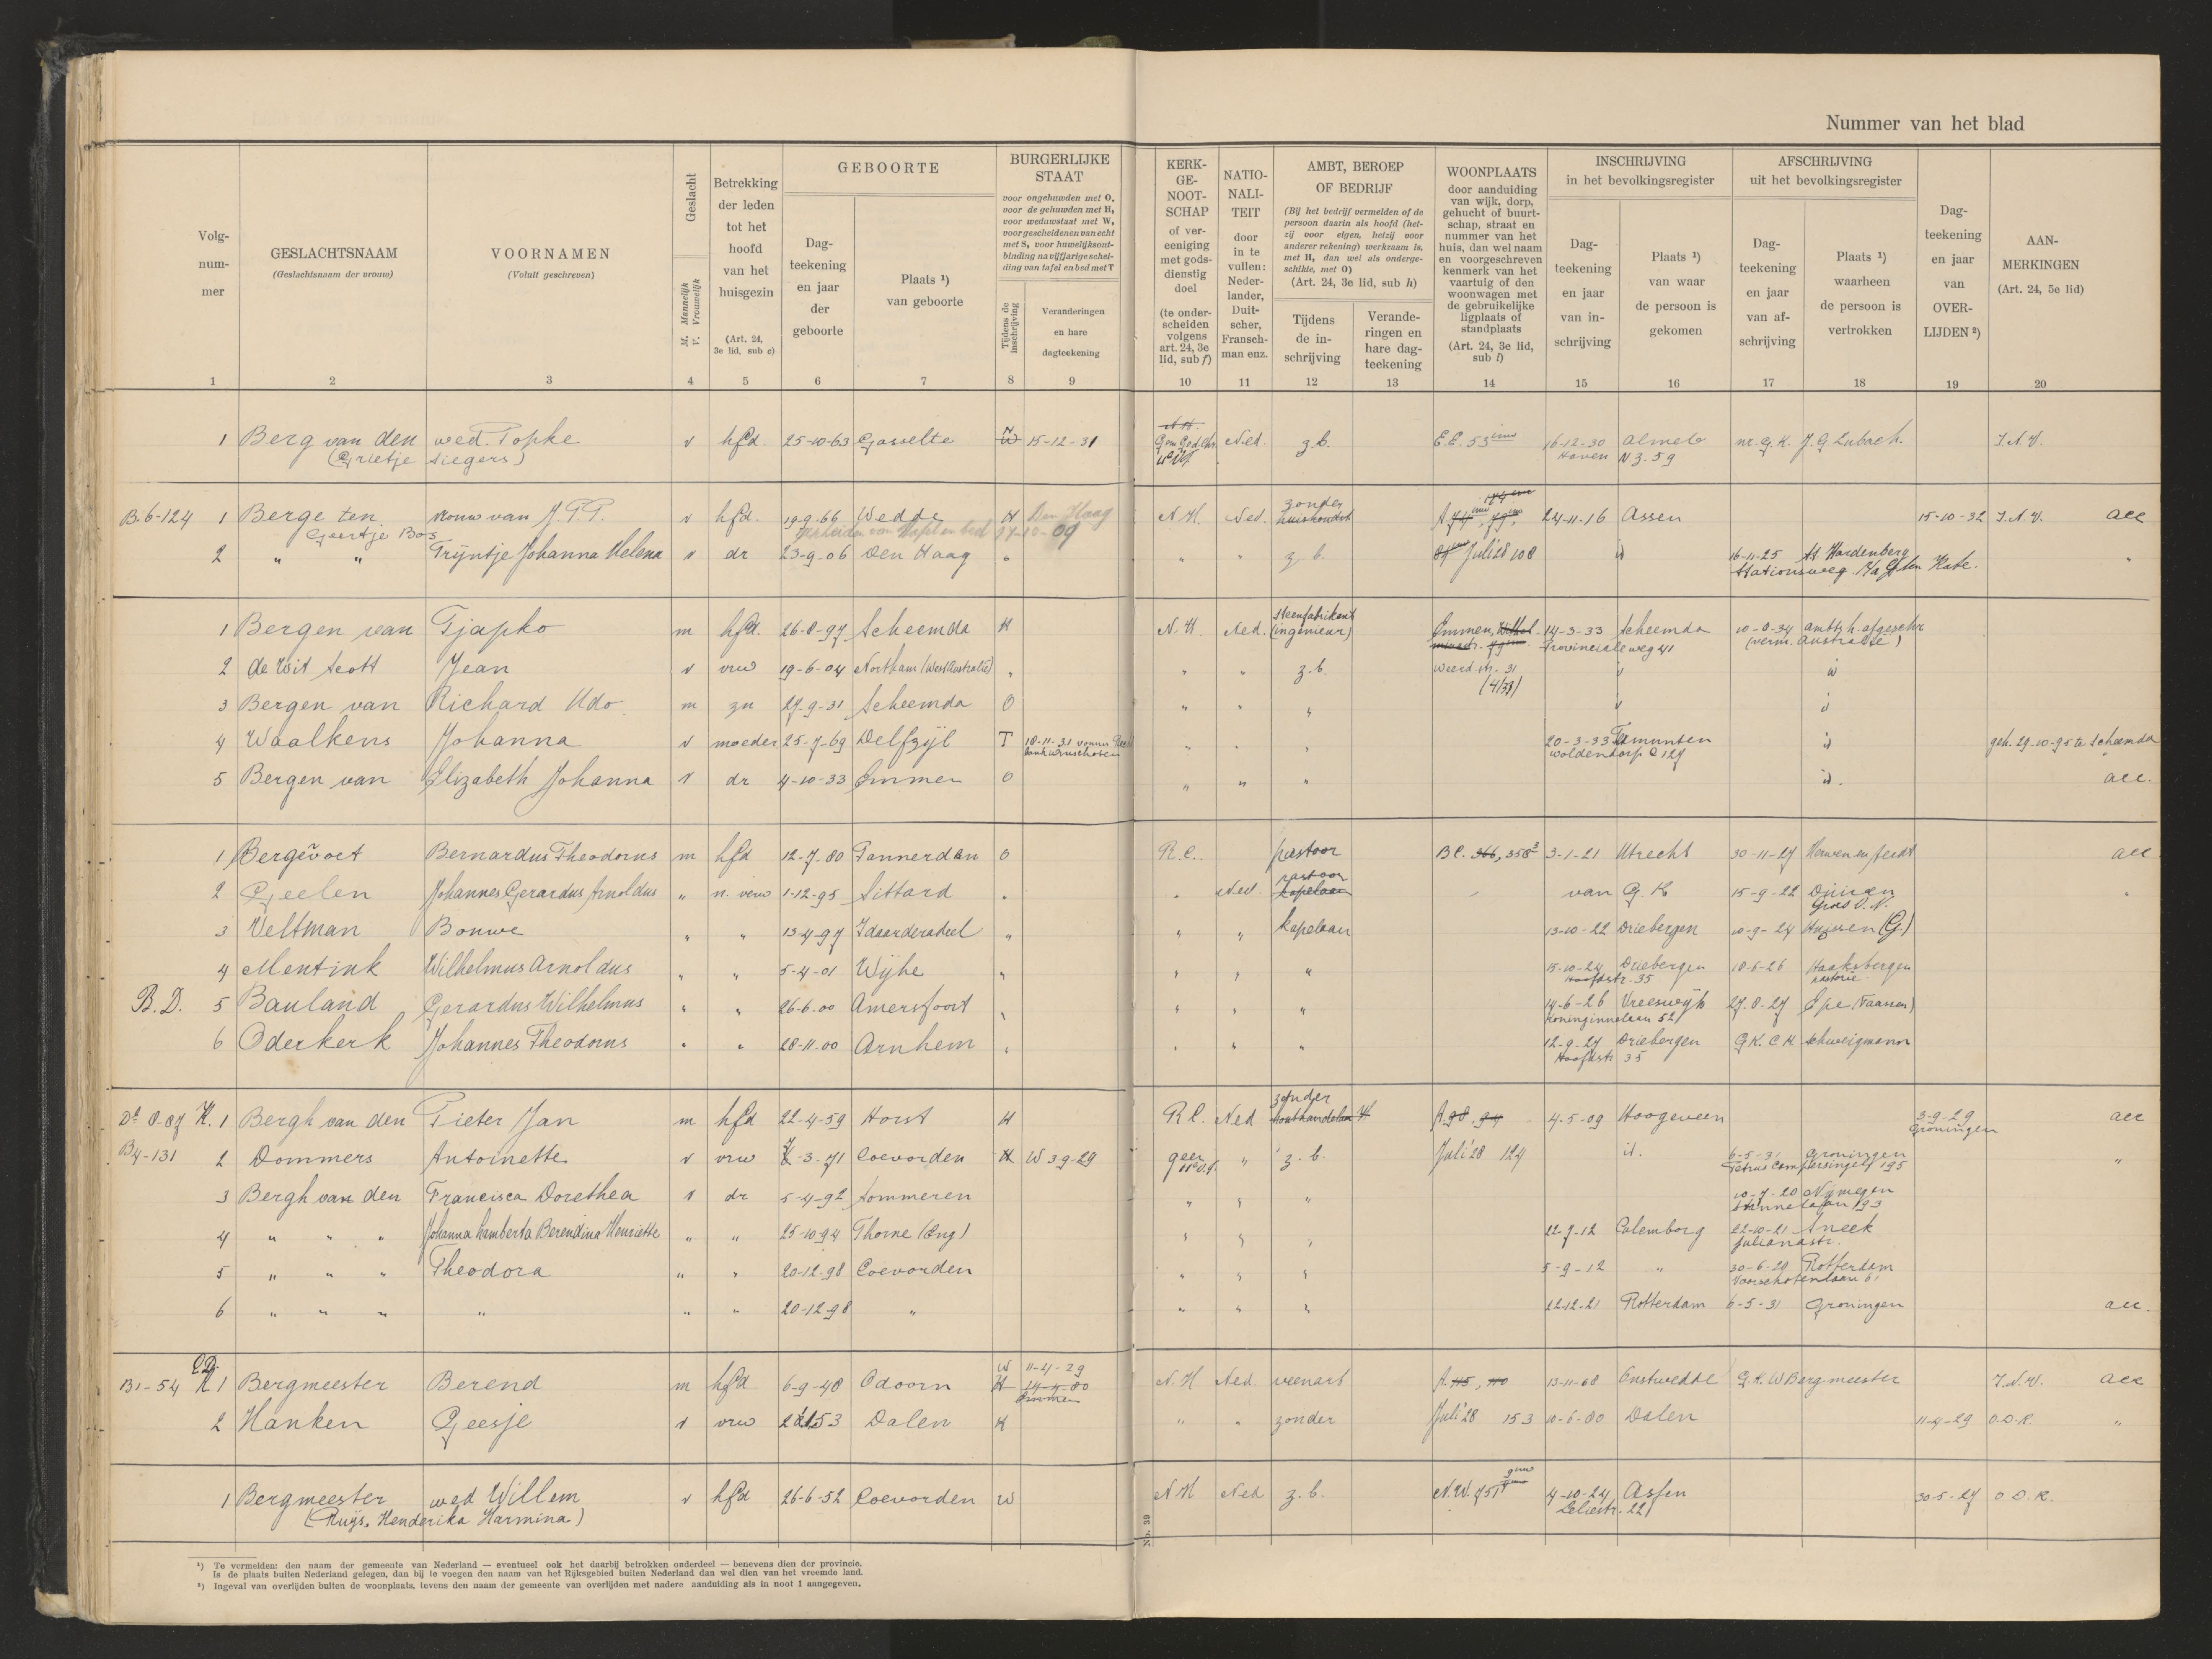 Nummer van het blad
Volg-
num-
mer
GESLACHTSNAAM
(Geslachtsnaam der vrouw)
VOORNAMEN
(Voluit geschreven)
Geslacht
M. Mannelijk
V. Vrouwelijk
Betrekking
der leden
tot het
hoofd
van het
huisgezin
(Art. 24,
3e lid, sub c)
GEBOORTE
Dag-
teekening
en jaar
der
geboorte
Plaats ¹)
van geboorte
BURGERLIJKE
STAAT
voor ongehuwden met O,
voor de gehuwden met H,
voor weduwstaat met W,
voor gescheidenen van echt
met S, voor huwelijksont-
binding na vijfjarige schei-
ding van tafel en bed met T
Tijdens de
inschrijving
Veranderingen
en hare
dagteekening
KERK-
GE-
NOOT-
SCHAP
of ver-
eeniging
met gods-
dienstig
doel
(te onder-
scheiden
volgens
art. 24, 3e
lid, sub f)
NATIO-
NALI-
TEIT
door
in te
vullen:
Neder-
lander,
Duit-
scher,
Fransch-
man enz.
AMBT, BEROEP
OF BEDRIJF
(Bij het bedrijf vermelden of de
persoon daarin als hoofd (het-
zij voor eigen, hetzij voor
anderer rekening) werkzaam is,
met H, dan wel als onderge-
schikte, met O)
(Art. 24, 3e lid, sub h)
Tijdens
de in-
schrijving
Verande-
ringen en
hare dag-
teekening
WOONPLAATS
door aanduiding
van wijk, dorp,
gehucht of buurt-
schap, straat en
nummer van het
huis, dan wel naam
en voorgeschreven
kenmerk van het
vaartuig of den
woonwagen met
de gebruikelijke
ligplaats of
standplaats
(Art. 24, 3e lid,
sub i)
INSCHRIJVING
in het bevolkingsregister
Dag-
teekening
en jaar
van in-
schrijving
Plaats ¹)
van waar
de persoon is
gekomen
AFSCHRIJVING
uit het bevolkingsregister
Dag-
teekening
en jaar
van af-
schrijving
Plaats ¹)
waarheen
de persoon is
vertrokken
Dag-
teekening
en jaar
van
OVER-
LIJDEN ²)
AAN-
MERKINGEN
(Art. 24, 5e lid)
1 2 3 4 5 6 7 8 9 10 11 12 13 14 15 16 17 18 19 20
1 Berg van den wed. Topke v hfd. 25-10-63 Gasselte W 15-12-31 N.H. Ned. z.b. E.E. 53 16-12-30 Almelo nr. G.K. J.G. Lubach. I.N.V.
(Grietje Siegers) Haven N.Z. 59
B.6-124 1 Berge ten vrouw van J.P.P. v hfd. 19-9-66 Wedde H Den Haag N.H. Ned. zonder 24-11-16 Assen 15-10-32 I.N.V. acc
Geertje Bos 27-10-09
2 " " Trijntje Johanna Helena v dr 23-9-06 Den Haag " " z.b. Juli '28 108 id 16-11-25 Hardenberg "
Stationsweg
1 Bergen van Tjapko m hfd. 26-8-97 Scheemda H N.H. Ned. steenfabrikant (ingenieur) Emmen, 14-3-33 Scheemda 10-8-34 ambtsh. afgeschr
Provincialeweg 41 (verm. Australië)
2 de Wit Scott Jean v vrw 19-6-04 Northam (West Australië) " " " z.b. Weerd str. 31 id id
3 Bergen van Richard Udo m zn 27-9-31 Scheemda O " " " id id
4 Waalkens Johanna v moeder 25-7-69 Delfzijl T 18-11-31 " " " 20-3-33 Termunten id geh. 29-10-95 te Scheemda
Woldendorp C 127
5 Bergen van Elizabeth Johanna v dr 4-10-33 Emmen O " " " id. acc.
1 Bergevoet Bernardus Theodorus m hfd 12-7-80 Pannerden O R.C. pastoor B C. 366, 358³ 3-1-21 Utrecht 30-11-27 Herwen en Aerdt acc
2 Geelen Johannes Gerardus Arnoldus " n. verw 1-12-95 Sittard " " Ned. pastoor kapelaan van G.K. 15-9-22 "
3 Veltman Bouwe " " 13-4-97 Idaarderadeel " " " kapelaan 13-10-22 Driebergen 10-9-24 Huissen (G.)
4 Mentink Wilhelmus Arnoldus " " 5-4-01 Wijhe " " " " 15-10-24 Driebergen 18-6-26 Haaksbergen
Hoofdstr. 35 pastorie
B.D. 5 Bauland Gerardus Wilhelmus " " 26-6-00 Amersfoort " " " " 14-6-26 Vreeswijk 27-8-27 Epe (Vaassen)
Koninginnelaan 52
6 Oderkerk Johannes Theodorus " " 28-11-00 Arnhem " " " " 12-9-27 Driebergen G.K. C.H. Schweigmann
Hoofdstr 35
K. 1 Bergh van den Pieter Jan m hfd 22-4-59 Horst H R.C. Ned zonder houthandelaar H A 98, 94 4-5-09 Hoogeveen 3-9-29 acc
Groningen
B4-131 2 Dommers Antoinette v vrw -3-71 Coevorden H W 3-9-29 geen " z.b. Juli '28 124 id. 6-5-31 Groningen "
Petrus Campersingel 195
3 Bergh van den Francisca Dorethea v dr 5-4-92 Sommeren " " " 10-7-20 Nijmegen
4 " " " Johanna Lamberta Berendina Henriette " " 25-10-94 Thorne (Eng) " " " 22-7-12 Culemborg 22-10-21 Sneek
Julianastr.
5 " " " Theodora " " 20-12-98 Coevorden " " " 5-9-12 " 30-6-20 Rotterdam
6 " " " " " " 20-12-98 " " " " 22-12-21 Rotterdam 6-5-31 Groningen acc.
W 11-4-29
B1-54 K 1 Bergmeester Berend m hfd 6-9-48 Odoorn H 14-4-80 N.H Ned. veenarb A. 115, 110 13-11-68 Onstwedde G.K. W Bergmeester I.N.V. acc
Emmen
2 Hanken Geesje v vrw Dalen H " " zonder Juli '28 153 10-6-80 Dalen 11-4-29 O.D.R. "
1 Bergmeester wed Willem v hfd 26-6-52 Coevorden W N.H Ned z.b. N.W. 751 4-10-24 Assen 30-5-27 O.D.R.
(Kuijs, Henderika Harmina) Leliestr. 22
No. 39
¹) Te vermelden: den naam der gemeente van Nederland — eventueel ook het daarbij betrokken onderdeel — benevens dien der provincie.
Is de plaats buiten Nederland gelegen, dan bij te voegen den naam van het Rijksgebied buiten Nederland dan wel dien van het vreemde land.
²) Ingeval van overlijden buiten de woonplaats, tevens den naam der gemeente van overlijden met nadere aanduiding als in noot 1 aangegeven.